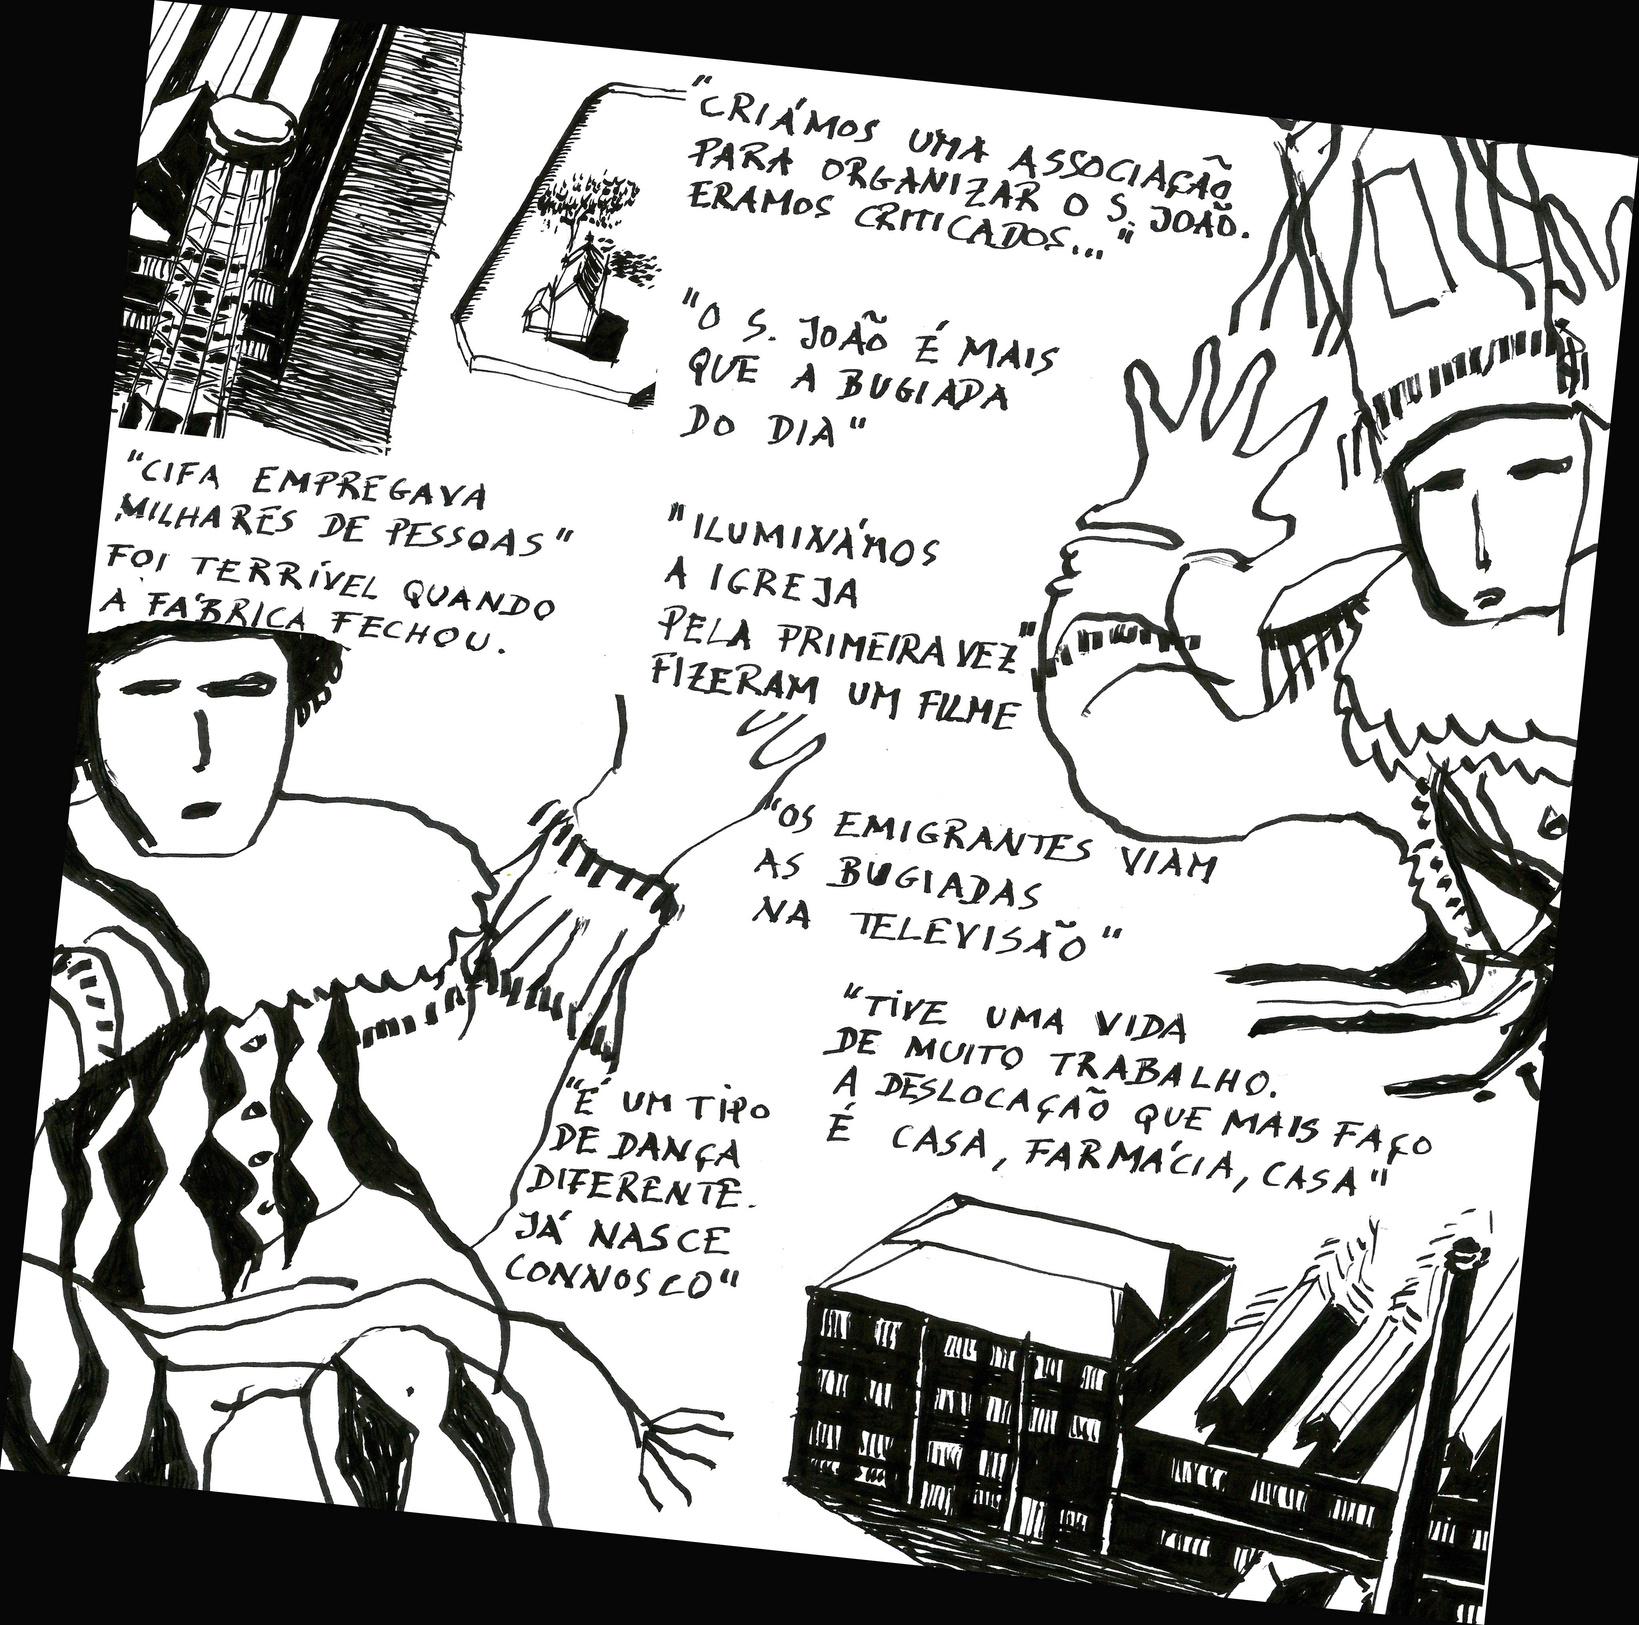 "CRIÁMOS UMA ASSOCIAÇÃO
PARA ORGANIZAR O S. JOÃO.
ERAMOS CRITICADOS..."
"O S. JOÃO É MAIS
QUE A BUGIADA
DO DIA"
"CIFA EMPREGAVA
MILHARES DE PESSOAS"
FOI TERRÍVEL QUANDO
A FÁBRICA FECHOU.
"ILUMINÁMOS
A IGREJA
PELA PRIMEIRA VEZ"
FIZERAM UM FILME
"OS EMIGRANTES VIAM
AS BUGIADAS
NA TELEVISÃO"
"TIVE UMA VIDA
DE MUITO TRABALHO.
A DESLOCAÇÃO QUE MAIS FAÇO
É CASA, FARMÁCIA, CASA"
"É UM TIPO
DE DANÇA
DIFERENTE.
JÁ NASCE
CONNOSCO"